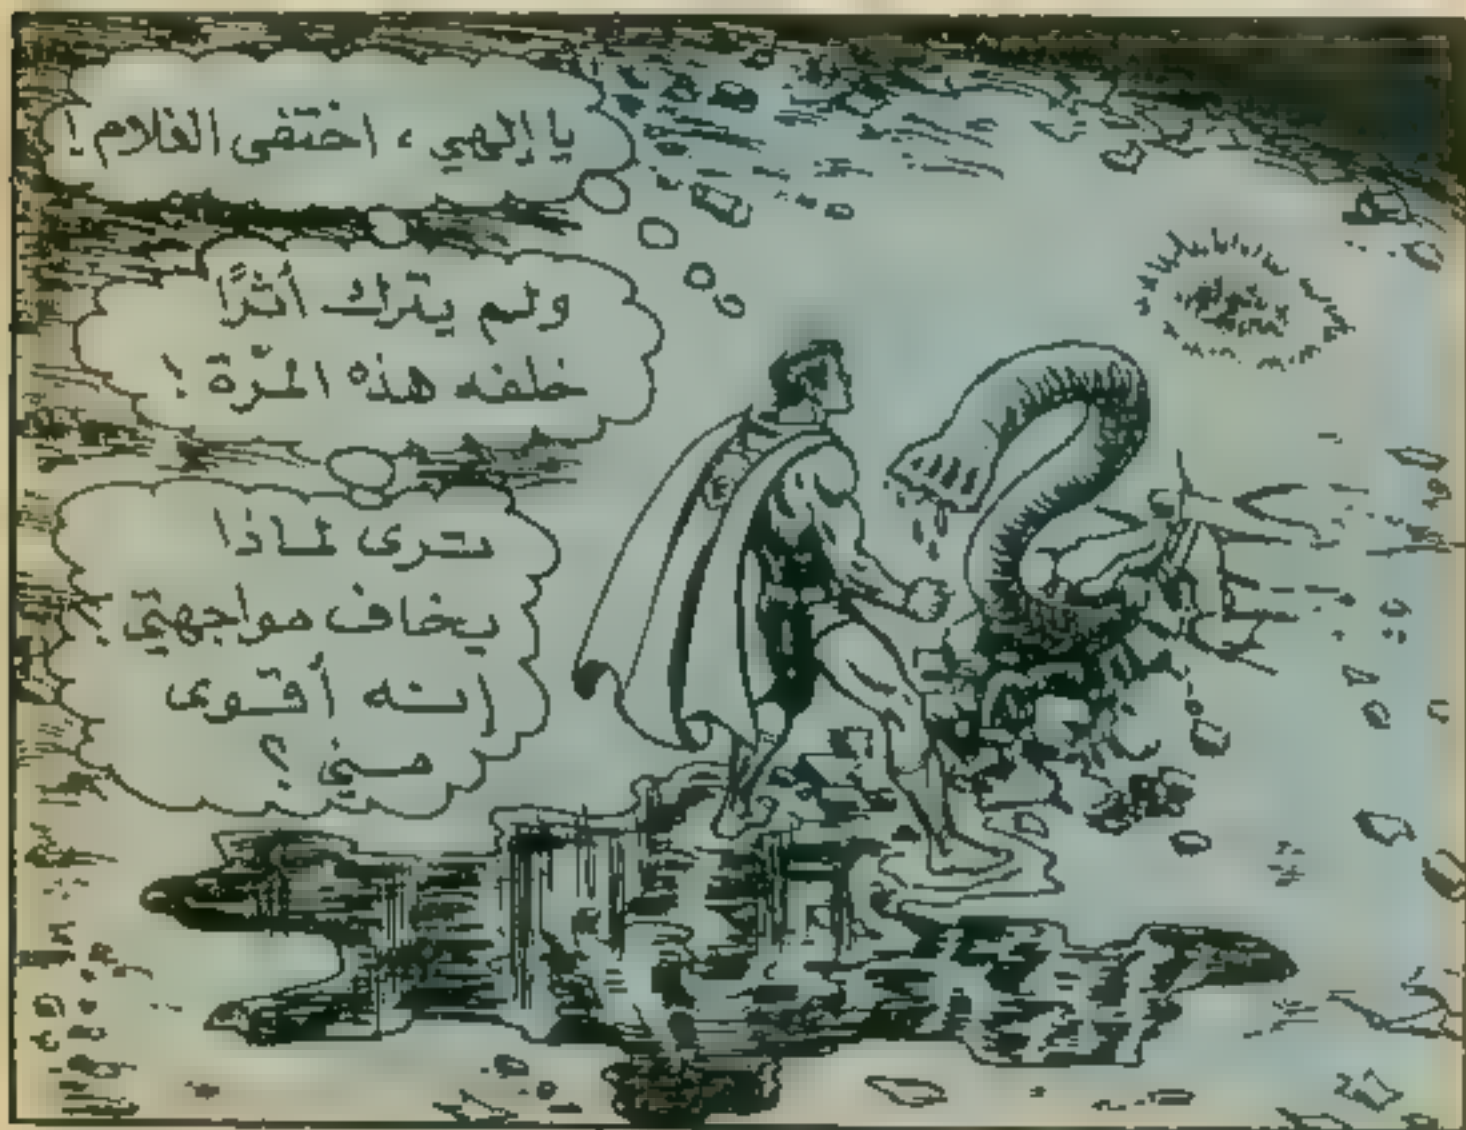 يا إلهي ، اختفى الغلام !
ولم يترك أثرًا
خلفه هذه المرّة !
ترى لماذا
يخاف مواجهتي ؟
إنه أقوى
مني ؟